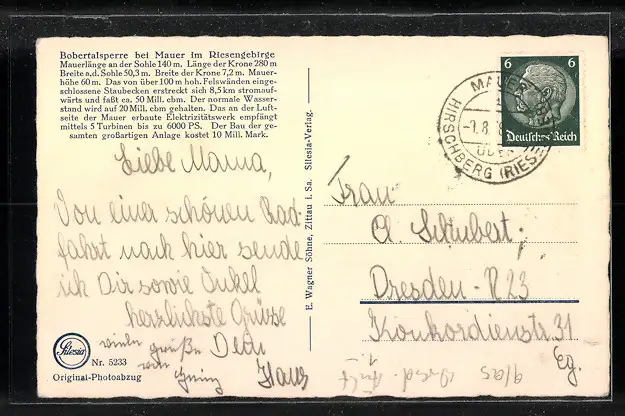 Bobertalsperre bei Mauer im Riesengebirge
Mauerlänge an der Sohle 140 m. Länge der Krone 280 m
Breite a.d. Sohle 50,3 m. Breite der Krone 7,2 m. Mauer-
höhe 60 m. Das von über 100 m hoh. Felswänden einge-
schlossene Staubecken erstreckt sich 8,5 km stromauf-
wärts und faßt ca. 50 Mill. cbm. Der normale Wasser-
stand wird auf 20 Mill. cbm gehalten. Das an der Luft-
seite der Mauer erbaute Elektrizitätswerk empfängt
mittels 5 Turbinen bis zu 6000 PS. Der Bau der ge-
samten großartigen Anlage kostet 10 Mill. Mark.
Liebe Mama,
Von einer schönen Rad-
fahrt nach hier sende
ich Dir sowie Onkel
herzlichste Grüße
Dein
Hans
Silesia
Nr. 5233
Original-Photoabzug
E. Wagner Söhne, Zittau i. Sa. Silesia-Verlag.
6 6
Deutsches Reich
MAUER
HIRSCHBERG (RIES
Frau
A. Schubert
Dresden-N23
Konkordienstr. 31
Eg.